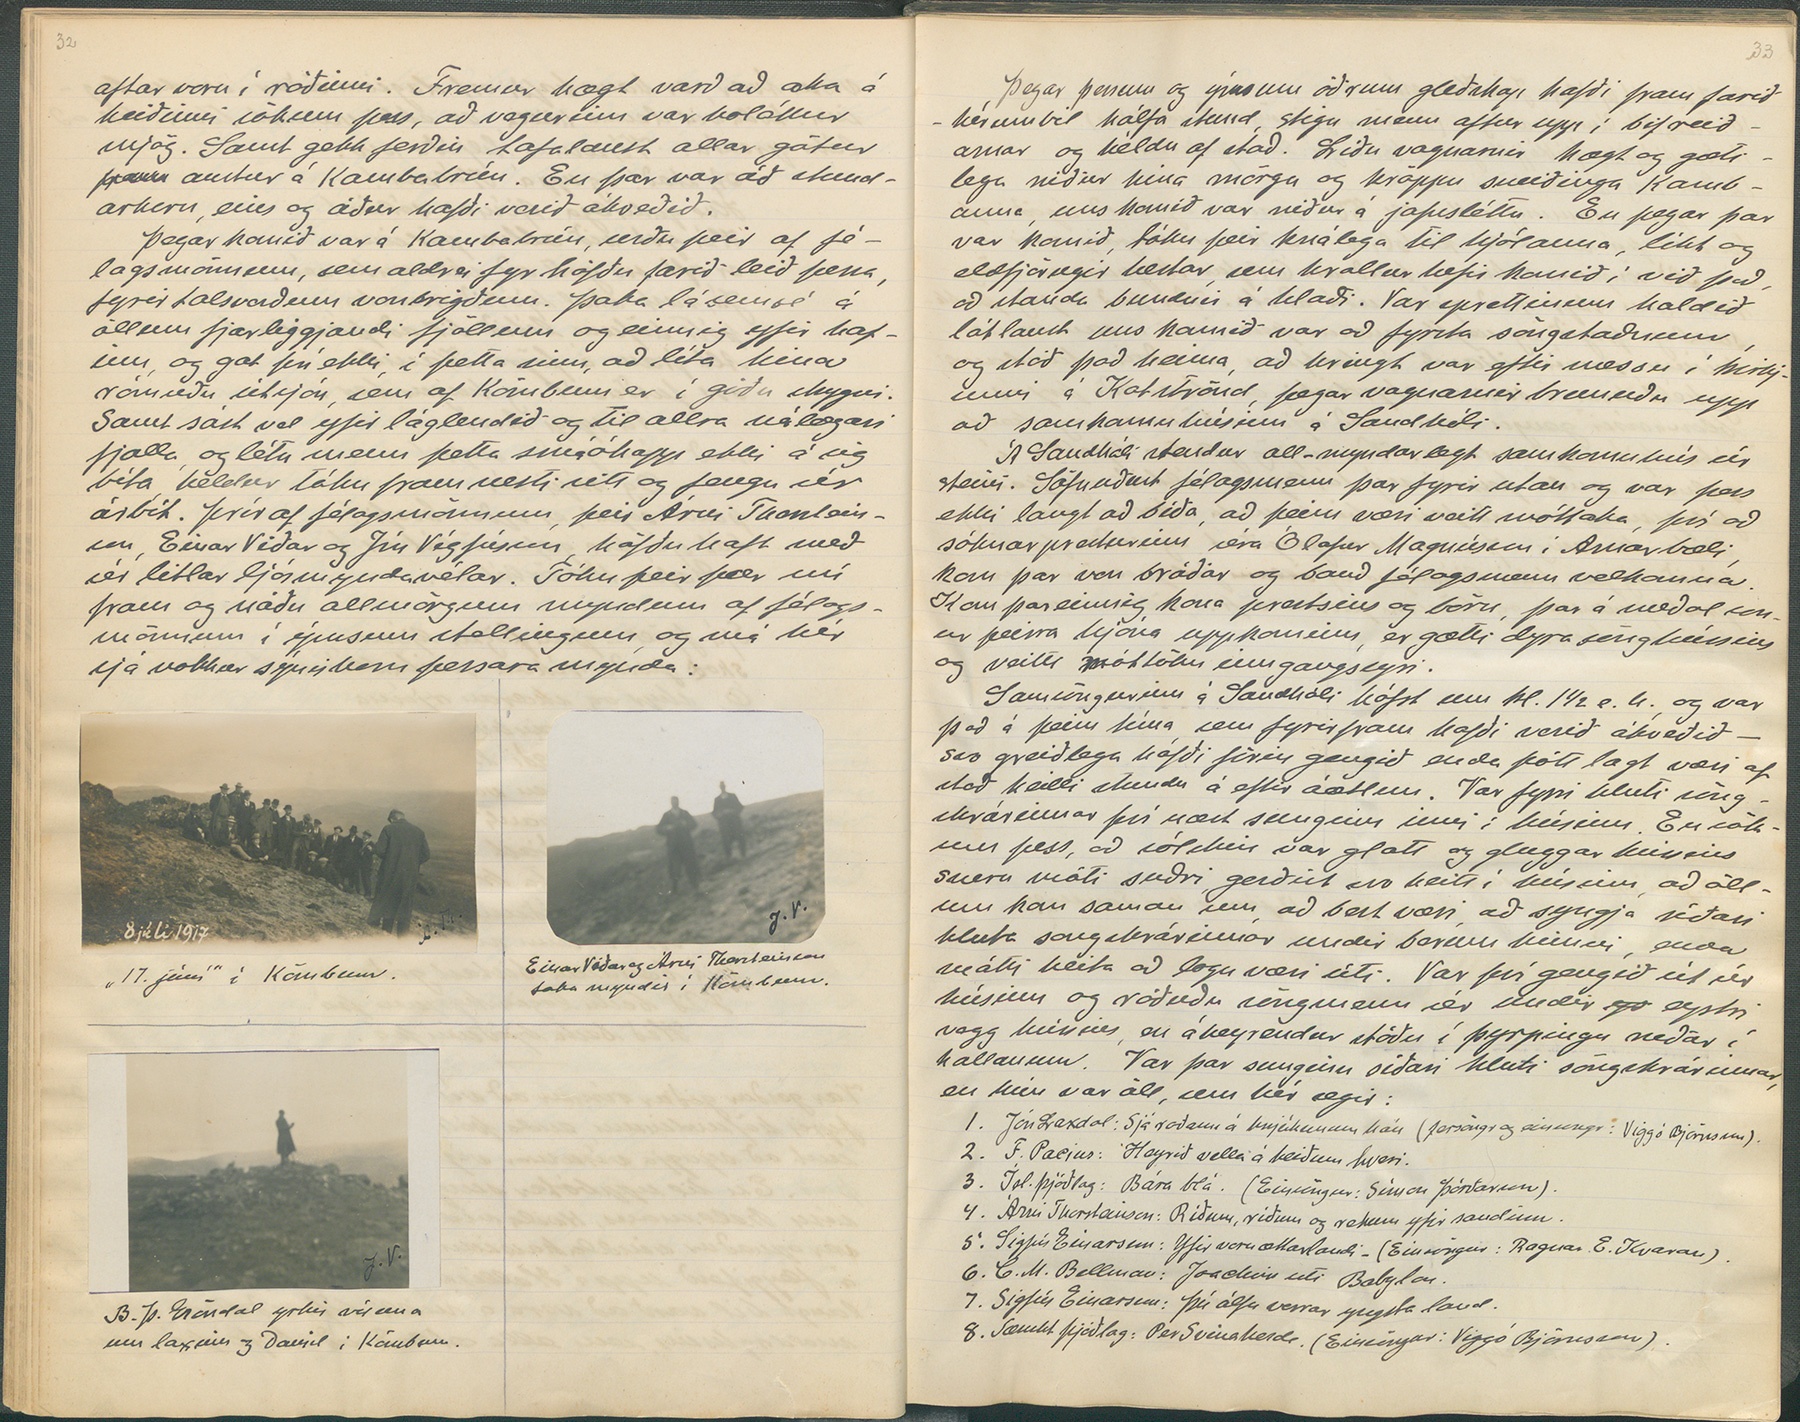 32
aftar voru í röðinni. Fremur hægt varð að aka á
heiðinni sökum þess, að vegurinn var holóttur
mjög. Samt gekk ferðin tafalaust allar götur
austur á Kambabrún. En þar var áð stund-
arkorn, eins og áður hafði verið ákveðið.
Þegar komið var á Kambabrún, urðu þeir af fé-
lagsmönnum, sem aldrei fyr höfðu farið leið þessa,
fyrir talsverðum vonbrigðum. Þoka lá sem sé á
öllum fjarliggjandi fjöllum og einnig yfir haf-
inu, og gat því ekki, í þetta sinn, að líta hina
rómuðu útsjón, sem af Kömbunum er í góðu skygni.
Samt sást vel yfir láglendið og til allra nálægari
fjalla, og létu menn þetta smáóhapp ekki á sig
bíta, heldur tóku fram nesti sitt og fengu sér
árbít. Þrír af félagsmönnum, þeir Árni Thorstein-
son, Einar Viðar og Jón Vigfússon, höfðu haft með
sér litlar ljósmyndavélar. Tóku þeir þær nú
fram og náðu allmörgum myndum af félags-
mönnum í ýmsum stellingum og má hér
sjá nokkur sýnishorn þessara mynda:
8 júlí 1917
Á. Th.
„17. júní" í Kömbum.
J. V.
Einar Viðar og Árni Thorsteinson
taka myndir í Kömbum.
J. V.
B. Þ. Gröndal yrkir vísuna
um laxinn og Daníel í Kömbum.
33
Þegar þessum og ýmsum öðrum gleðskap hafði fram farið
hérumbil hálfa stund, stigu menn aftur upp í bifreið-
arnar og héldu af stað. Liðu vagnarnir hægt og gæti-
lega niður hina mörgu og kröppu sneiðinga Kamb-
anna, uns komið var niður á jafnsléttu. En þegar þar
var komið, tóku þeir knálega til hjólanna, líkt og
eldfjörugir hestar, sem hrollur hefir komið í við það,
að standa bundnir á hlaði. Var sprettinum haldið
látlaust uns komið var að fyrsta söngstaðnum,
og stóð það heima, að hringt var eftir messu í kirkj-
unni á Kotströnd, þegar vagnarnir brunuðu upp
að samkomuhúsinu á Sandhóli.
Á Sandhóli stendur all-myndarlegt samkomuhús úr
steini. Söfnuðust félagsmenn þar fyrir utan og var þess
ekki langt að bíða, að þeim væri veitt móttaka, því að
sóknarpresturinn séra Ólafur Magnússon í Arnarbæli,
kom þar von bráðar og bauð félagsmenn velkomna.
Kom þar einnig kona prestsins og börn, þar á meðal son-
ur þeirra hjóna uppkominn, er gætti dyra sönghússins
og veitti móttöku inngangseyri.
Samsöngurinn á Sandhóli hófst um kl. 1½ e. h., og var
það á þeim tíma, sem fyrirfram hafði verið ákveðið —
svo greiðlega hafði förin gengið enda þótt lagt væri af
stað heilli stundu á eftir áætlun. Var fyrri hluti söng-
skrárinnar því næst sunginn inni í húsinu. En sök-
um þess, að sólskin var glatt og gluggar hússins
sneru móti suðri, gerðist svo heitt í húsinu, að öll-
um kom saman um, að best væri, að syngja síðari
hluta söngskrárinnar undir berum himni, enda
mátti heita að logn væri úti. Var því gengið út úr
húsinu og röðuðu söngmenn sér undir eystri
vegg hússins, en áheyrendur stóðu í þyrpingu neðar í
hallanum. Var þar sunginn síðari hluti söngskrárinnar,
en hún var öll, sem hér segir:
1. Jón Laxdal: Sjá roðann á hnjúkunum háu (þersöngr og einsöngr: Viggó Björnsson).
2. F. Pacius: Heyrið vella á heiðum hveri.
3. Ísl. þjóðlag: Bára blá. (Einsöngur: Símon Þórðarson).
4. Árni Thorsteinson: Ríðum, ríðum og rekum yfir sandinn.
5. Sigfús Einarsson: Yfir voru ættarlandi - (Einsöngur: Ragnar E. Kvaran).
6. C. M. Bellman: Joachim uti Babylon.
7. Sigfús Einarsson: Þú álfu vorrar yngsta land.
8. Sænskt þjóðlag: Per Svinaherde. (Einsöngur: Viggó Björnsson).